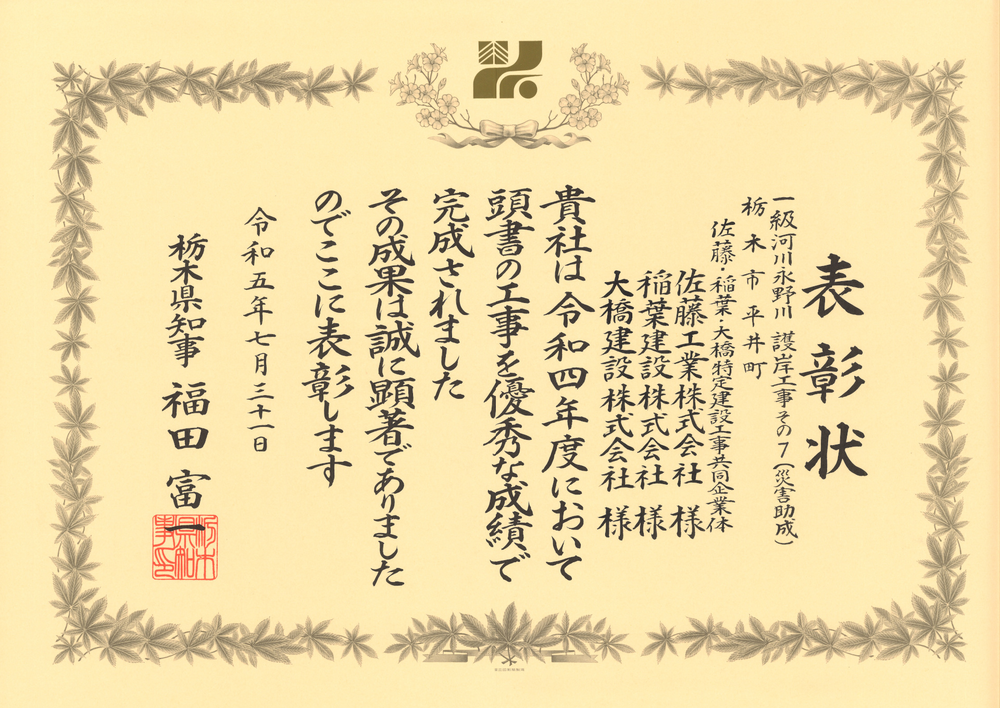 表彰状
一級河川永野川 護岸工事その7(災害助成)
栃木市平井町
佐藤・稲葉・大橋特定建設工事共同企業体
佐藤工業株式会社 様
稲葉建設株式会社 様
大橋建設株式会社 様
貴社は令和四年度において
頭書の工事を優秀な成績で
完成されました
その成果は誠に顕著でありました
のでここに表彰します
令和五年七月三十一日
栃木県知事 福田 富一
栃木県知事印